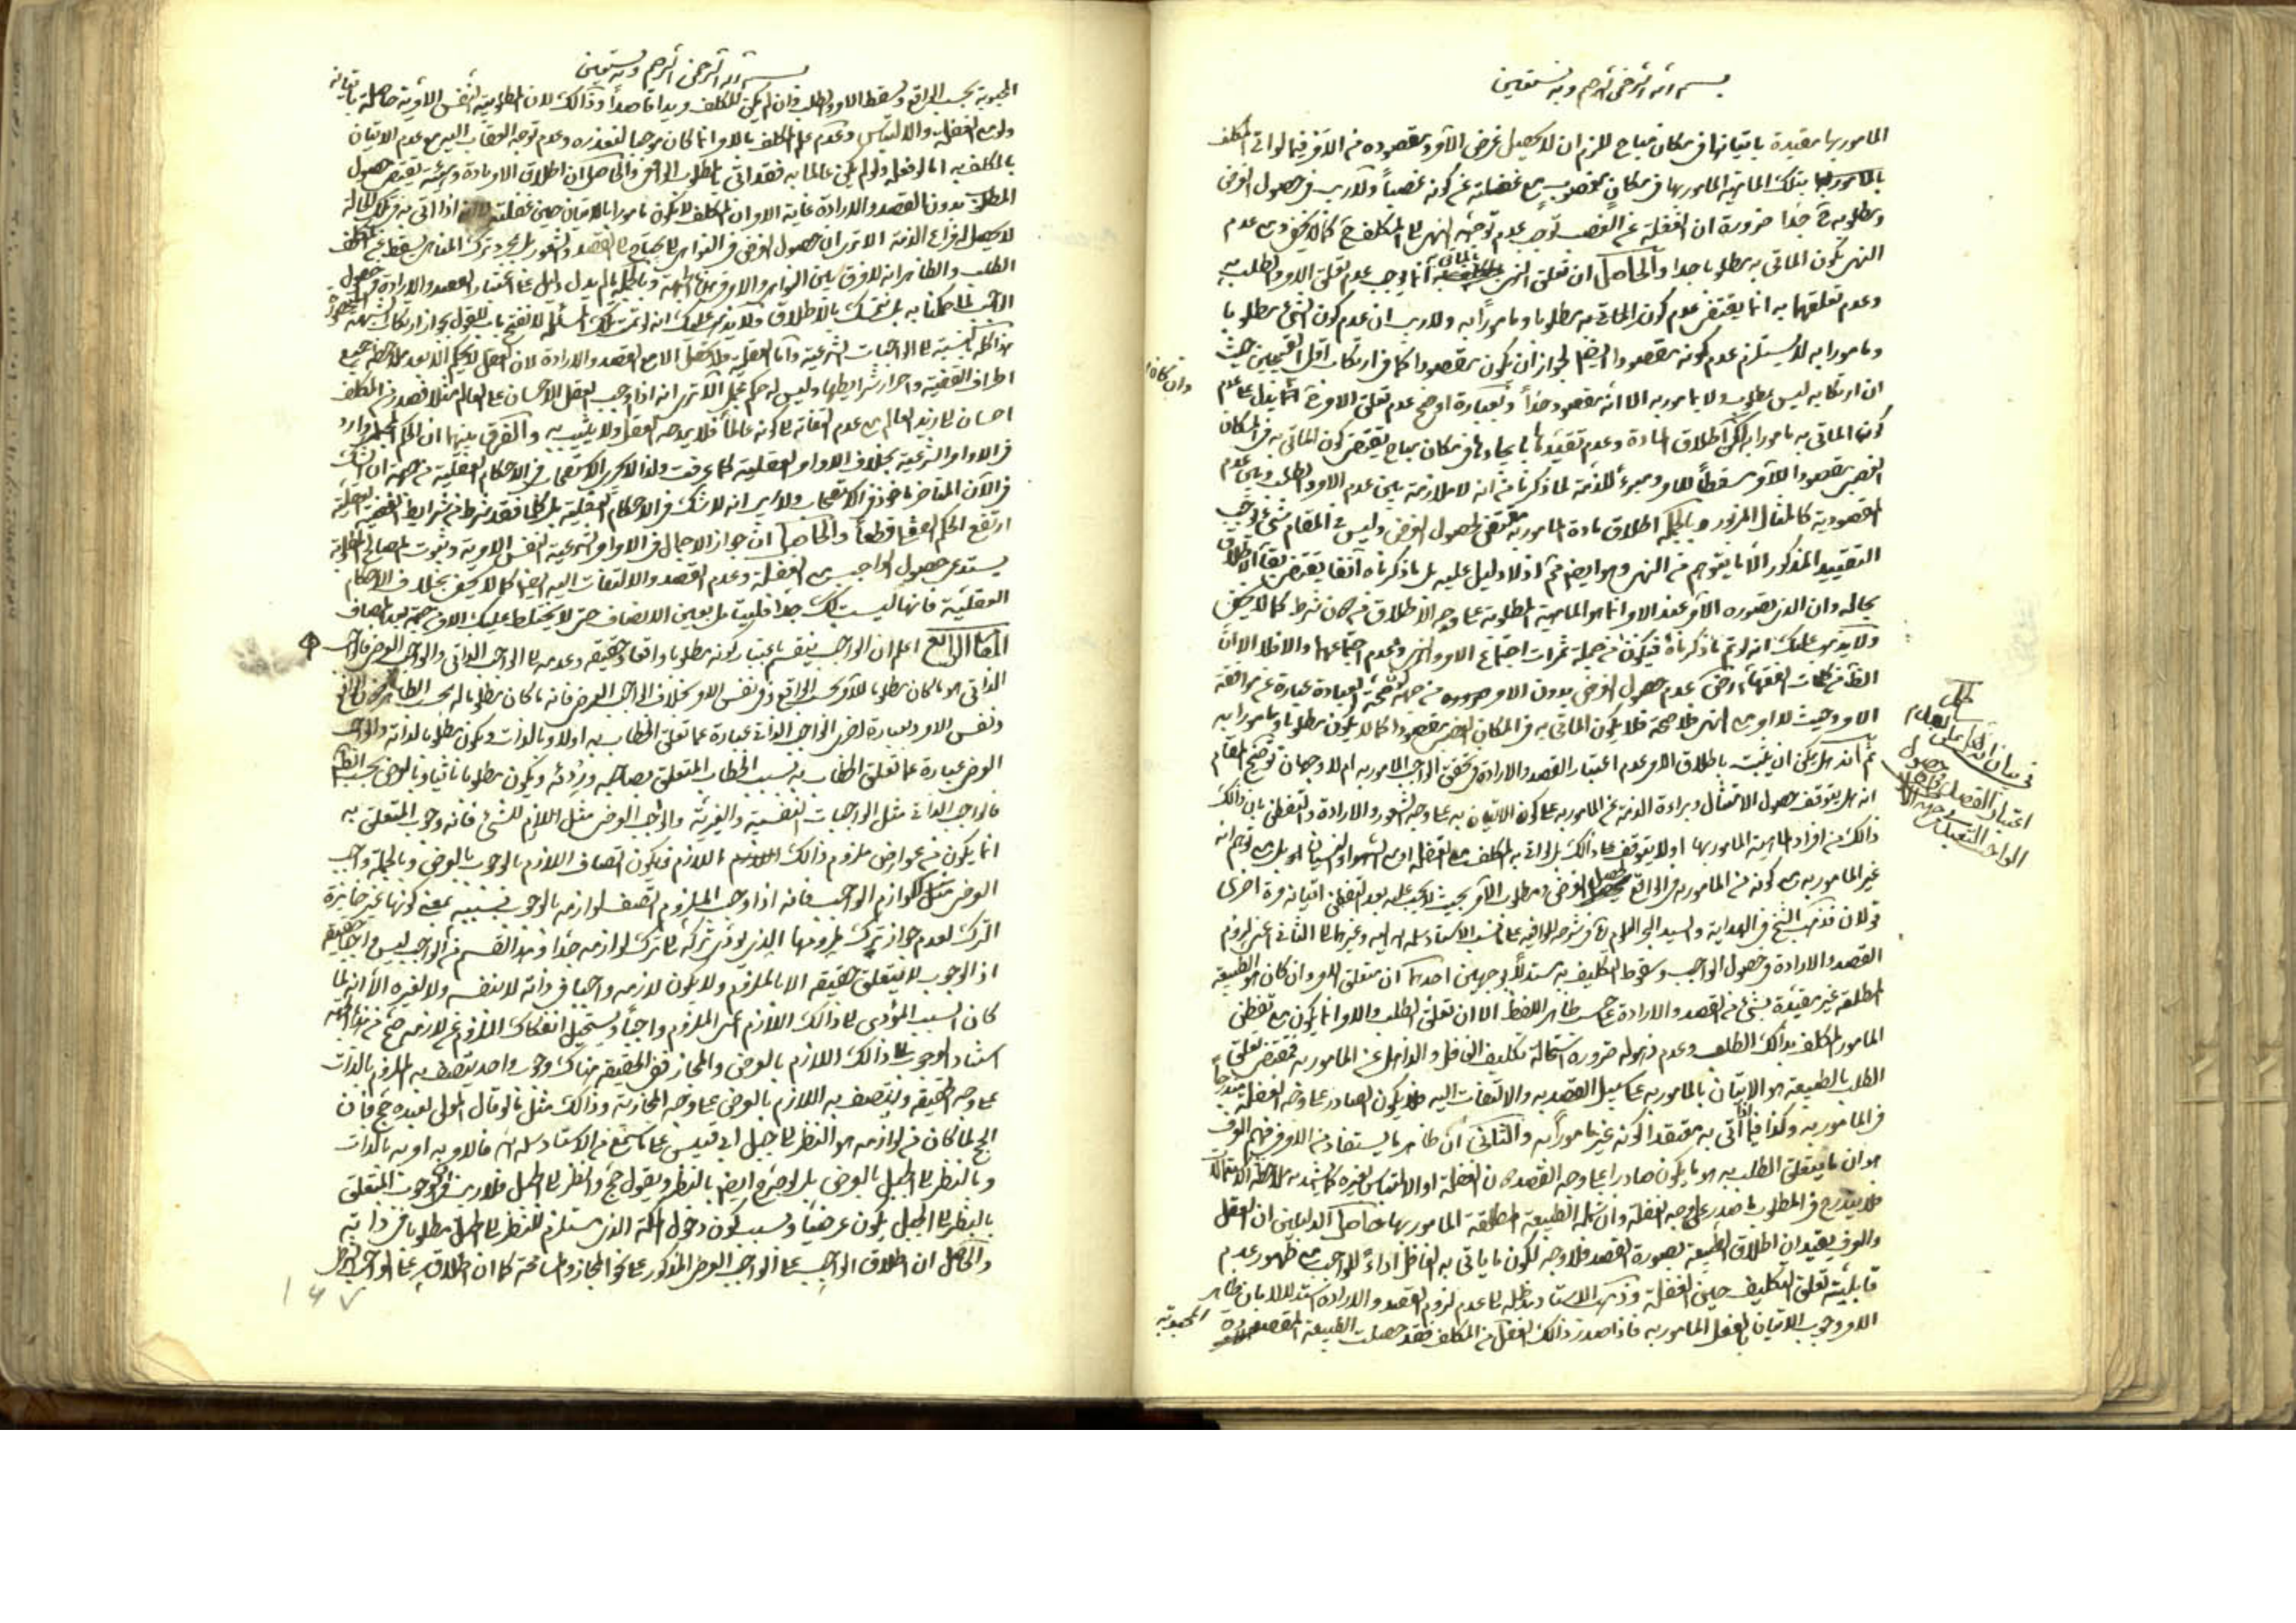 بسم الله الرحمن الرحيم وبه نستعين
المامور بها مقيدة باتيانها في مكان مباح للزم ان لا يحصل غرض الآمر ومقصوده من الامر فيما لو اتى المكلف
بتلك الماهية المامور بها في مكان مغصوب مع غفلته عن كونه غصباً ولا ريب في حصول الغرض
ومطلوبه ح جداً ضرورة ان الغفلة عن الغصب توجب عدم توجه النهى الى المكلف ح كما لا يخفى ومع عدم
النهى يكون الماتى به مطلوبا جدا والحاصل ان تعلق النهى بالماتى به انما يوجب عدم تعلق الامر والطلب به
وعدم تعلقهما به انما يقتضى عدم كون الماتى به مطلوبا ومامورًا به ولا ريب ان عدم كون الشئ مطلوبا
ومامورا به لا يستلزم عدم كونه مقصودا ايضا لجواز ان يكون مقصودا كما في ارتكاب اقل القبيحين حيث
وان كان
ان ارتكابه ليس بمطلوب ولا بمامور به الا انه مقصود جداً وبعبارة اوضح عدم تعلق الامر انما يدل على عدم
كون الماتى به مامورا به لكن اطلاق المادة وعدم تقييدها بايجادها في مكان مباح يقتضى كون الماتى به في المكان
الغصبى مقصودا للآمر ومسقطاً للامر ومبرءً للذمة لما ذكرنا من انه لا ملازمة بين عدم الامر والطلب وبين عدم
المقصودية كالمثال المزبور وبالجملة اطلاق مادة المامور به يقتضى حصول الغرض وليس في المقام شئ يوجب
التقييد المذكور الا ما يتوهم من النهى وهو ايضا اذ لا دليل عليه بل ما ذكرناه آنفا يقتضى بقاء الاطلاق
بحاله وان الذى تصوره الآمر عند الامر انما هو الماهية المطلوبة على وجه الاطلاق من دون شرط كما لا يخفى
ولا يذهب عليك انه لو تم ما ذكرناه فيكون من جملة ثمرات اجتماع الامر والنهى وعدم اجتماعهما والا فلا الا ان
الظاهر من كلمات الفقهاء رض عدم حصول الغرض بدون الامر من جهة ان صحة العبادة عبارة عن موافقة
الامر وحيث لا امر مع النهى فلا صحة فلا يكون الماتى به في المكان الغصبى مقصودا كما لا يكون مطلوبا ومامورا به
ثم انه هل يمكن ان يثبت باطلاق الامر عدم اعتبار القصد والارادة في تحقق الواجب المامور به ام لا وجهان توضيح المقام
في بيان ان
اعتبار القصد
حصول
الواجب التعبدى
انه هل يتوقف حصول الامتثال وبراءة الذمة عن المامور به على كون الاتيان به على وجه الشعور والارادة والتفطن بان ذالك
ذالك من افراد الماهية المامور بها او لا يتوقف على ذالك بل لو اتى به المكلف مع الغفلة او مع السهو والنسيان او بل مع توهم انه
غير المامور به مع كونه من المامور به في الواقع يحصل الغرض ومطلوب الآمر بحيث لا يجب عليه بعد التفطن اتيانه مرة اخرى
قولان فذهب الشيخ في الهداية والسيد بحر العلوم في شرحه للوافية على ما نسب الاستاد سلمه الله اليه وغيرهما الى الثانى اعنى لزوم
القصد والارادة في حصول الواجب وسقوط التكليف به مستدلاً بوجهين احدهما ان متعلق الامر وان كان هو الطبيعة
المطلقة غير مقيدة بشئ من القصد والارادة بحسب ظاهر اللفظ الا ان تعلق الطلب والامر انما يكون مع تفطن
المامور المكلف بذالك الطلب وعدم ذهوله ضرورة استحالة تكليف الغافل والذاهل عن المامور به فمقتضى تعلق
الطلب بالطبيعة هو الاتيان بالمامور به على سبيل القصد به والالتفات اليه فلا يكون الصادر على وجه الغفلة مندرجاً
في المامور به وكذا فيما اتى به معتقدا لكونه غير مامورا به والثانى ان ظاهر ما يستفاد من الامر في فهم العرف
هو ان ما يتعلق الطلب به هو ما يكون صادرا على وجه القصد دون الغفلة او الالتباس بغيره كما يشهد به ملاحظة الاستعمالات
فلا يندرج في المطلوب ما صدر على وجه الغفلة وان شمله الطبيعة المطلقة المامور بها فحاصل الدليلين ان العقل
والعرف يقيدان اطلاق الطبيعة بصورة القصد فلا وجه لكون ما ياتى به الغافل اداءً للواجب مع ظهور عدم
قابليته تعلق التكليف حين الغفلة وذهب الاستاد مد ظله الى عدم لزوم القصد والارادة استدلالا بان ظاهر
الامر وجوب الاتيان بالفعل المامور به فاذا صدر ذالك الفعل من المكلف فقد حصلت الطبيعة المقصودة
المحبوبة
بسم الله الرحمن الرحيم وبه نستعين
المحبوبة بحسب الواقع ويسقط الامر والطلب وان لم يكن المكلف مريدا قاصداً وذالك لان مطلوبية النفس الامرية حاصلة باتيانه
ولو مع الغفلة والالتباس وعدم علم المكلف بالامر انما كان موجبا لتعذره وعدم توجه العقاب اليه مع عدم الاتيان
بالمكلف به اما لو فعله ولو لم يكن عالما به فقد اتى بالمطلوب الواقعى والحاصل ان اطلاق الامر مادة وهيئة يقتضى حصول
المطلوب بدون القصد والارادة غاية الامر ان المكلف لا يكون مامورا بالاتيان حين غفلته لا انه اذا اتى به في تلك الحالة
لا يحصل له فراغ الذمة الا ترى ان حصول الغرض في النواهى لا يحتاج الى القصد والشعور بل بمجرد ترك المناهى يسقط عن المكلف
الطلب والظاهر انه لا فرق بين النواهى والاوامر من هذه الجهة وبالجملة ما لم يدل دليل على اعتبار القصد والارادة في حصول
الواجب لما حكمنا به بل نتمسك بالاطلاق ولا يذهب عليك انه لو تمت تلك المسئلة لانفتح باب للقول بجواز ارتكاب الشبهة المحصورة
هذا كله بالنسبة الى الواجبات الشرعية واما العقلية فلا يحصل الا مع القصد والارادة لان العقل لا يحكم الا بعد ملاحظة جميع
اطراف القضية واحراز شرايطها وليس له حكم مجمل الا ترى انه اذا اوجب العقل الاحسان على العالم مثلا فصدر من المكلف
احسان الى زيد العالم مع عدم التفاته الى كونه عالماً فلا يمدحه العقل ولا يثيب به والفرق بينهما ان الحكم المجمل وارد
في الاوامر الشرعية بخلاف الاوامر العقلية كما عرفت ولذا لا يجرى الاستصحاب في الاحكام العقلية من جهة ان الشك
في الآن المتاخر ماخوذ في الاستصحاب ولا ريب انه لا شك في الاحكام العقلية بل كلما فقد شرط من شرايط القضية العقلية
ارتفع الحكم العقلى قطعاً والحاصل ان جواز الاجمال في الاوامر الشرعية النفس الامرية وثبوت المصالح المطلوبة
يستدعى حصول الواجب مع الغفلة وعدم القصد والالتفات اليه ايضا كما لا يخفى بخلاف الاحكام
العقلية فانها ليست كك جداً فليتامل بعين الانصاف حتى لا يختلط عليك الامر من جهة بعد المصاف
المقام الرابع اعلم ان الواجب ينقسم باعتبار كونه مطلوبا واقعا وحقيقة وعدمه الى الواجب الذاتى والواجب العرضى فالواجب
الذاتى هو ما كان مطلوبا للآمر بحسب الواقع وفى نفس الامر بخلاف الواجب العرضى فانه ما كان مطلوبا له بحسب الظاهر دون الواقع
ونفس الامر وبعبارة اخرى الواجب الذاتى عبارة عما تعلق الخطاب به اولا وبالذات ويكون مطلوبا لذاته والواجب
العرضى عبارة عما تعلق الخطاب به بسبب الخطاب المتعلق بصاحبه ورديفه ويكون مطلوبا ثانيا وبالعرض بحسب الظاهر
فالواجب الذاتى مثل الواجبات النفسية والغيرية والواجب العرضى مثل اللازم للشئ فانه وجوب المتعلق به
انما يكون من عوارض ملزوم ذالك اللازم فيكون اتصاف اللازم بالوجوب بالعرض وبالجملة واجب
العرضى مثل لوازم الواجب فانه اذا وجب الملزوم اتصف لوازمه بالوجوب بسببه بمعنى كونها غير جايزة
الترك لعدم جواز ترك ملزومها الذى يؤدى تركه الى ترك لوازمه جداً وهذا القسم من الواجب ليس واجبا حقيقة
اذ الوجوب لا يتعلق حقيقة الا بالملزوم ولا يكون لازمه واجبا في ذاته لا لنفسه ولا لغيره الا انه لما
كان السبب المؤدى الى ذالك اللازم اعنى الملزوم واجباً ويستحيل انفكاك الملزوم عن لازمه صح من هذه الجهة
اسناد الوجوب الى ذالك اللازم بالعرض والمجاز ففى الحقيقة هناك وجوب واحد يتصف به الملزوم بالذات
على وجه الحقيقة ويتصف به اللازم بالعرض على وجه المجازية وذالك مثل ما لو قال المولى لعبده حج فان
الحج لما كان من لوازمه هو النظر الى جبل ابى قبيس على ما سمع من الاستاد سلمه الله فالامر به امر به بالذات
وبالنظر الى الجبل بالعرض بل لو صرح ايضا بالنظر ويقول حج وانظر الى الجبل فلا ريب في ان وجوب المتعلق
بالنظر الى الجبل يكون عرضياً وبسبب كون دخول المكة الذى مستلزم للنظر الى الجبل مطلوبا في ذاته
والحاصل ان اطلاق الواجب على الواجب العرضى المذكور على نحو المجاز والمسامحة كما ان اطلاقه على الواجب
١٤٧